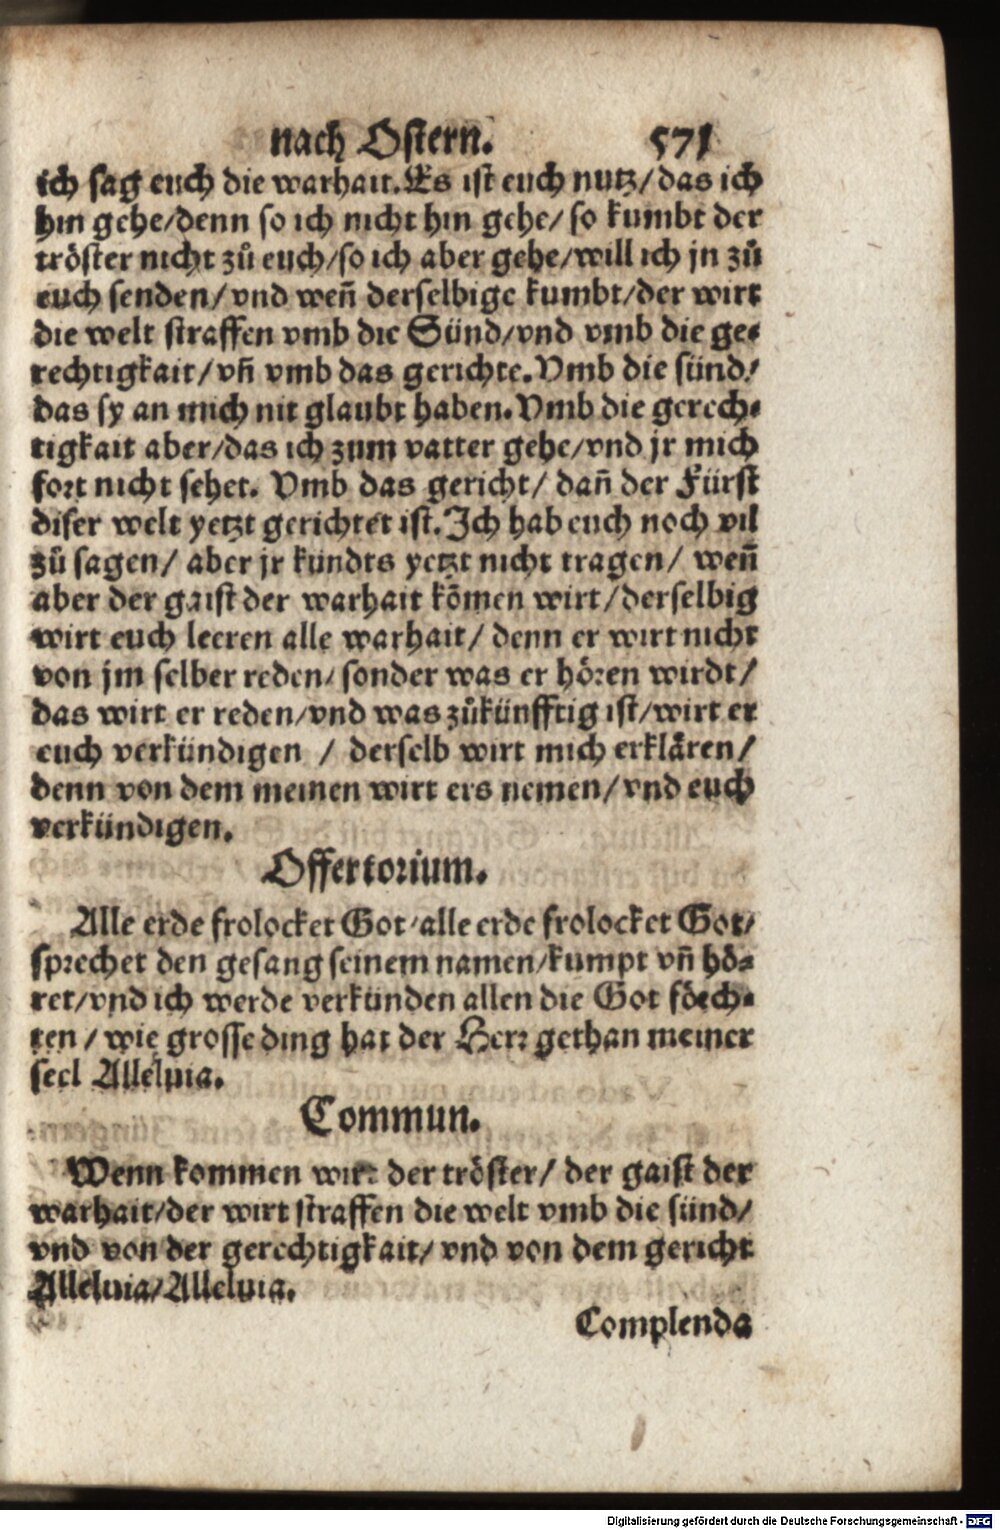 nach Ostern. 571
ich sag euch die warhait. Es ist euch nutz/ das ich
hin gehe/denn so ich nicht hin gehe/ so kumbt der
tröster nicht zů euch/so ich aber gehe/will ich jn zů
euch senden/ vnd weñ derselbige kumbt/der wirt
die welt straffen vmb die Sünd/vnd vmb die ge-
rechtigkait/ vñ vmb das gerichte. Vmb die sünd/
das sy an mich nit glaubt haben. Vmb die gerech-
tigkait aber/das ich zum vatter gehe/vnd jr mich
fort nicht sehet. Vmb das gericht/ dañ der Fürst
diser welt yetzt gerichtet ist. Ich hab euch noch vil
zů sagen/ aber jr kündts yetzt nicht tragen/ weñ
aber der gaist der warhait kōmen wirt/derselbig
wirt euch leeren alle warhait/ denn er wirt nicht
von jm selber reden/ sonder was er hören wirdt/
das wirt er reden/vnd was zůkünfftig ist/wirt er
euch verkündigen / derselb wirt mich erklären/
denn von dem meinen wirt ers nemen/ vnd euch
verkündigen.
Offertorium.
Alle erde frolocket Got/alle erde frolocket Got/
sprechet den gesang seinem namen/kumpt vñ hö-
ret/vnd ich werde verkünden allen die Got förch-
ten / wie grosse ding hat der Herr gethan meiner
seel Alleluia.
Commun.
Wenn kommen wirt der tröster/ der gaist der
warhait/der wirt straffen die welt vmb die sünd/
vnd von der gerechtigkait/ vnd von dem gericht
Alleluia/Alleluia.
Complenda
Digitalisierung gefördert durch die Deutsche Forschungsgemeinschaft - DFG